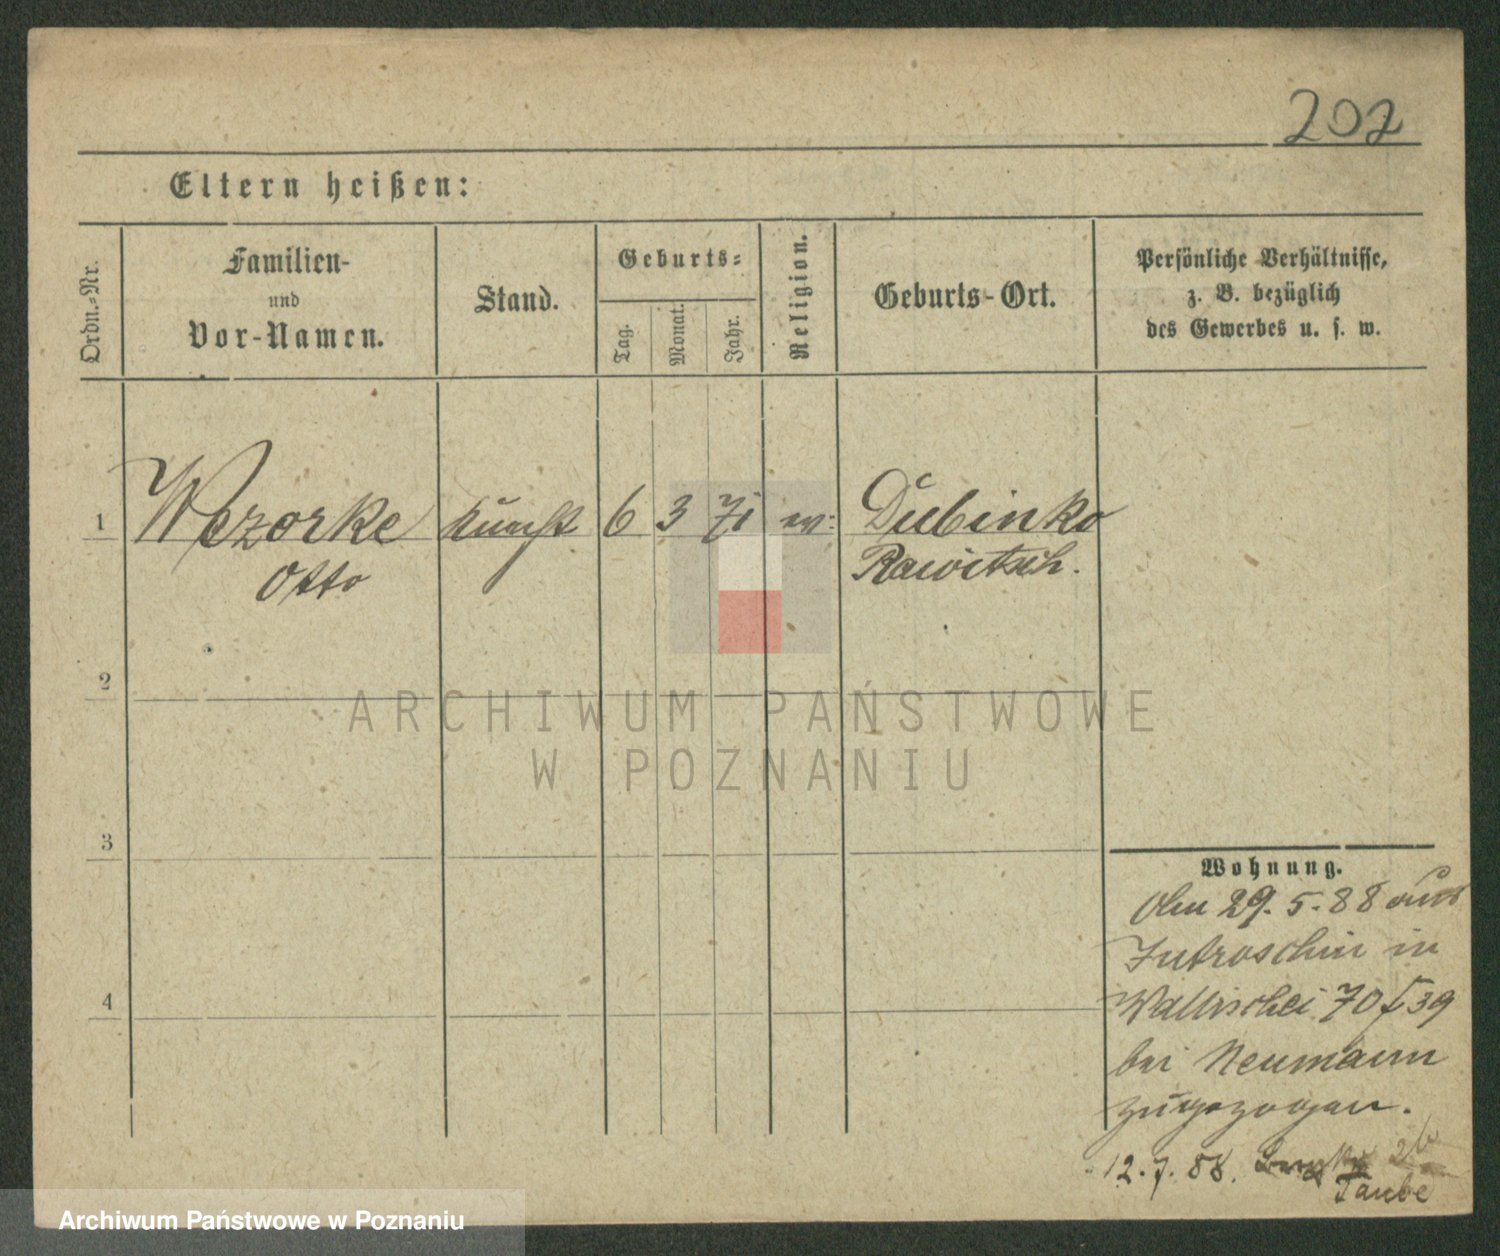 202
Eltern heißen:
Ordn.-Nr.
Familien-
und
Vor-Namen.
Stand.
Geburts-
Tag.
Monat.
Jahr.
Religion.
Geburts-Ort.
Persönliche Verhältnisse,
z. B. bezüglich
des Gewerbes u. s. w.
1 Wezorke 6 3 71 Dubinko
Otto
Rawitsch.
2
3
4
Wohnung.
29.5.88 aus
Jutroschin in
Wallischei 70/39
bei Neumann
zugezogen.
12.7.88.
Taube
ARCHIWUM PAŃSTWOWE
W POZNANIU
Archiwum Państwowe w Poznaniu